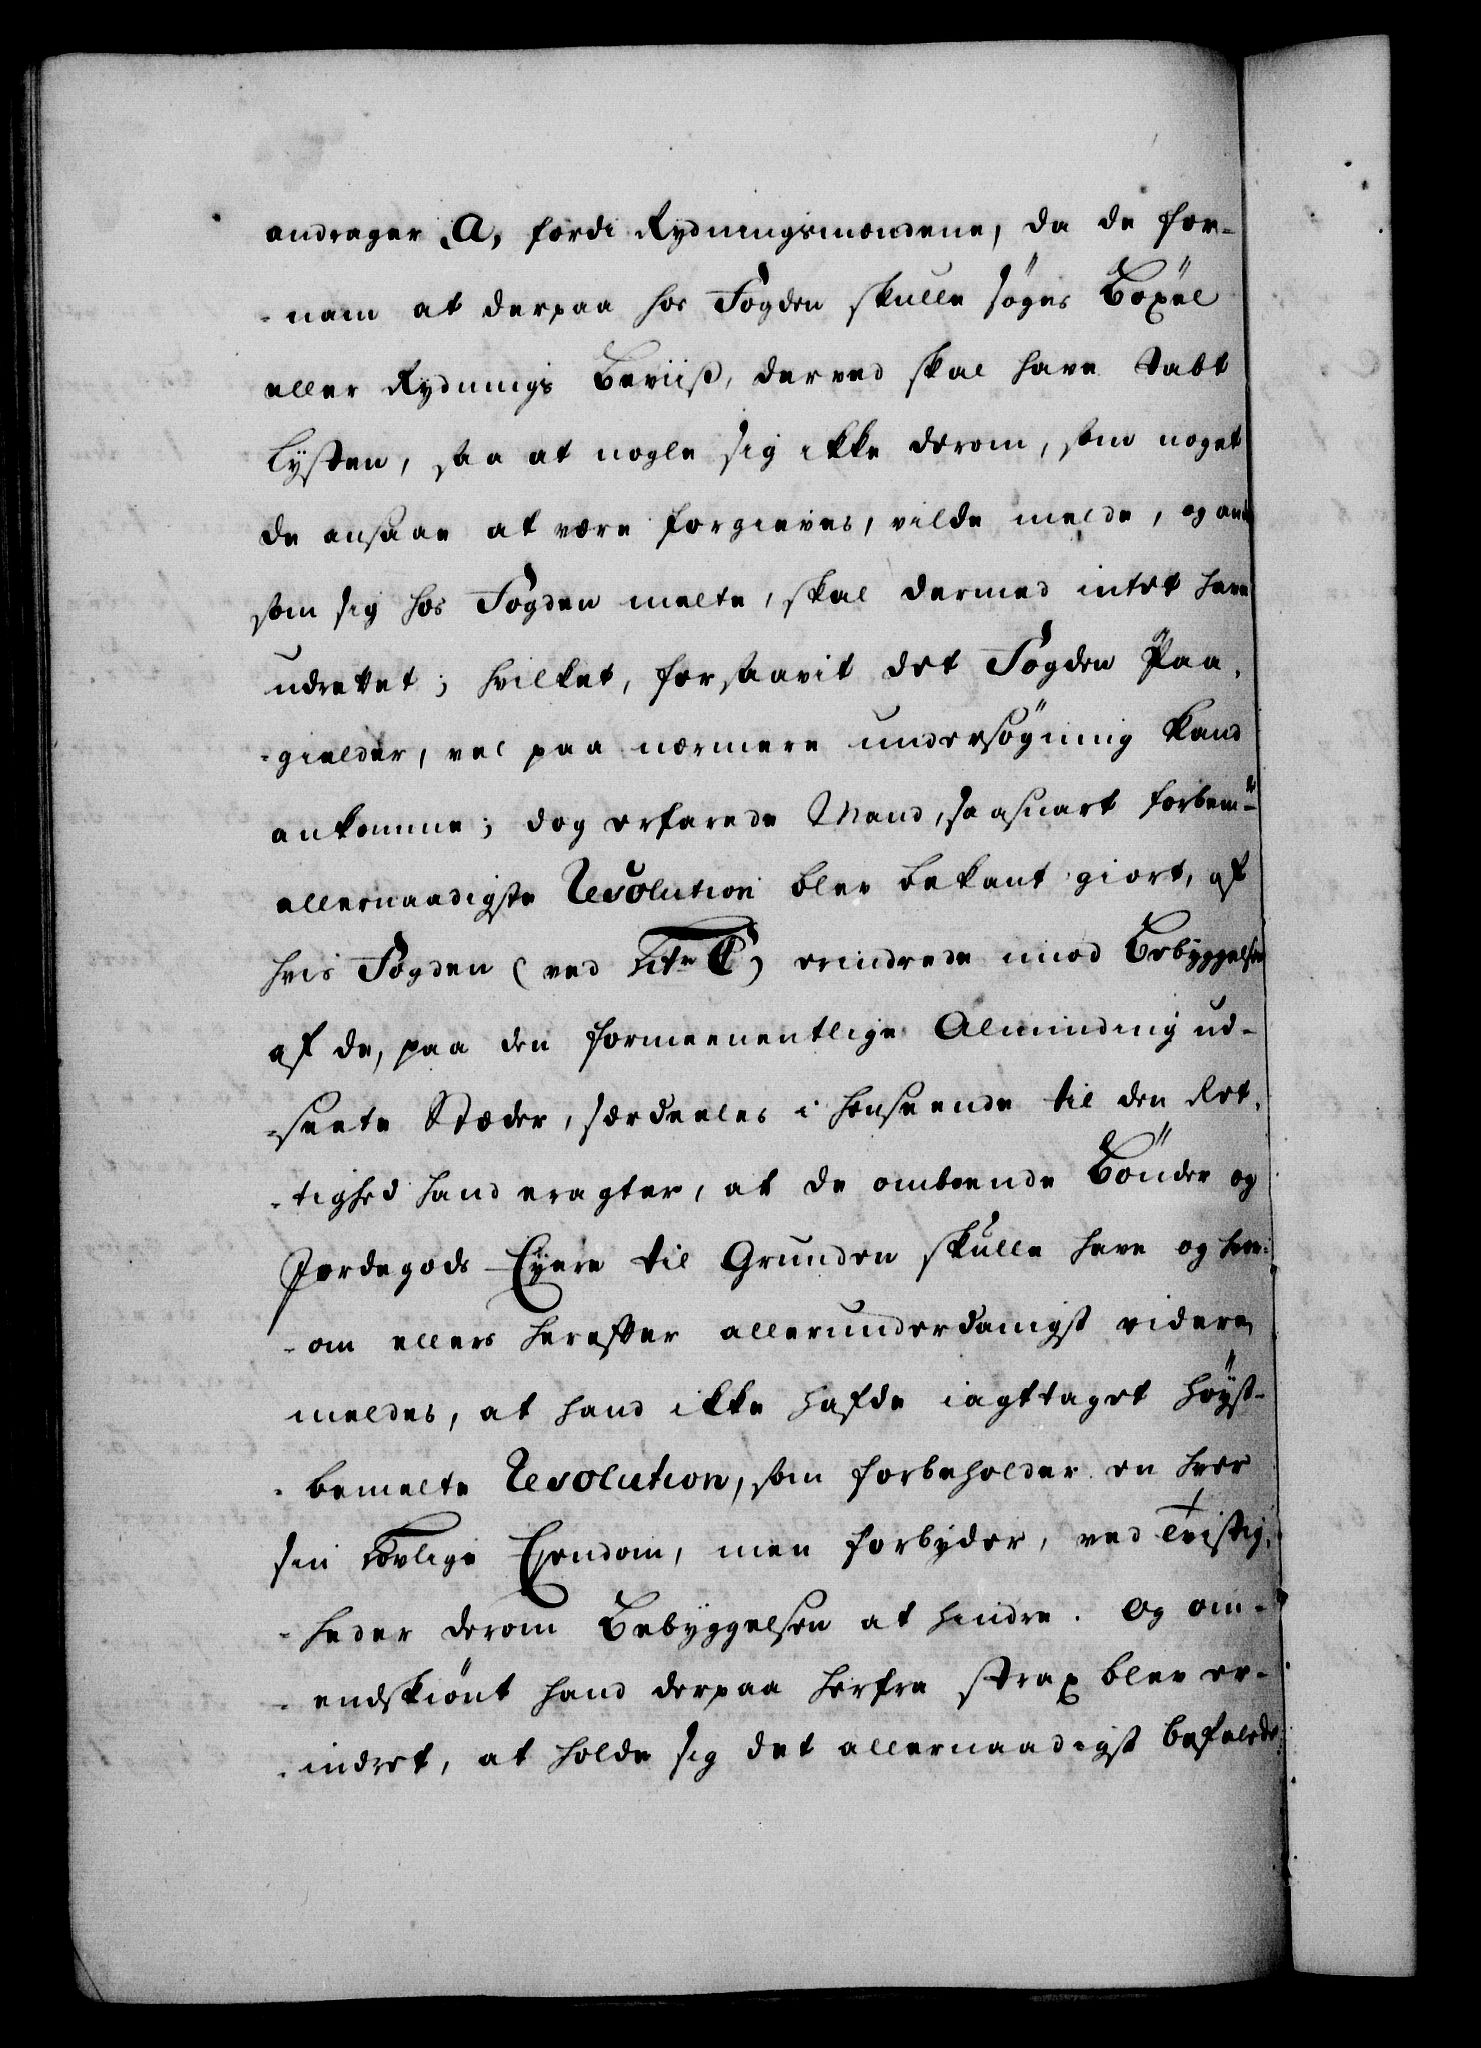 andrager A, fordi Rydningsmændene, da de for-
-nam at derpaa hos Fogden skulle søges Böxel
eller Rydnings Beviiß, derved skal have tabt
Lysten, saa at nogle sig ikke derom, som noget
de ansaae at være forgieves, vilde melde, og
som sig hos Fogden melte, skal dermed intet have
udrettet; hvilket, forsaavit det Fogden Paa-
-gielder, vel paa nærmere undersøgning kand
ankomme; dog erfarede Mand, saasnart forbemte
allernaadigste Resolution blev bekant giort, af
hvis Fogden (ved Litr C) erindrede imod Bebyggelsen
af de, paa den formeenentlige Alminding ud-
-seete Stæder, særdeeles i henseende til den Ret-
-tighed hand eragter, at de omboende Bönder og
Jordegods Eyere til Grunden skulle have og hvor-
-om ellers herefter allerunderdanigst videre
meldes, at hand ikke hafde iagttaget Höyst-
-bemelte Resolution, som forbeholder en hver
sin Lovlige Eyendom, men forbyder, ved Tvistig-
-heder derom Bebyggelsen at hindre. Og om-
-endskiönt hand derpaa herfra strax blev er-
-indret, at holde sig det allernaadigst befalede